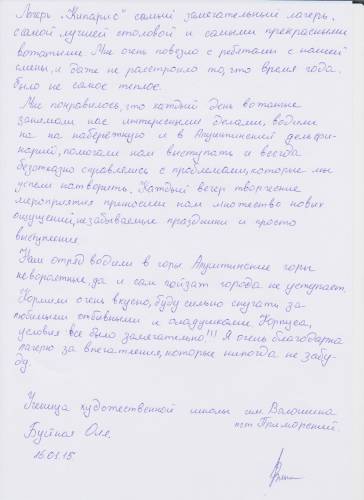 Лагерь "Кипарис" самый замечательный лагерь,
с самой лучшей столовой и самыми прекрасными
вожатыми. Мне очень повезло с ребятами с нашей
смены, и даже не расстроило то, что время года
было не самое теплое.
Мне понравилось, что каждый день вожатые
занимали нас интересными делами, водили
на на набережную и в Алуштинский дельфи-
нарий, помогали нам выступать и всегда
безотказно справлялись с проблемами, которые мы
успели натворить. Каждый вечер творческие
мероприятия приносили нам множество новых
ощущений, незабываемые праздники и просто
выступления.
Наш отряд водили в горы Алуштинские горы
невероятные, да и сам пейзаж города не уступает.
Кормили очень вкусно, буду сильно скучать за
любимыми отбивными и оладушками. Корпуса,
условия все было замечательно!!! Я очень благодарна
лагерю за впечатления, которые никогда не забу-
ду.
Ученица художественной школы им. Волошина
пгт Приморский.
Буйная Оля.
16.01.15